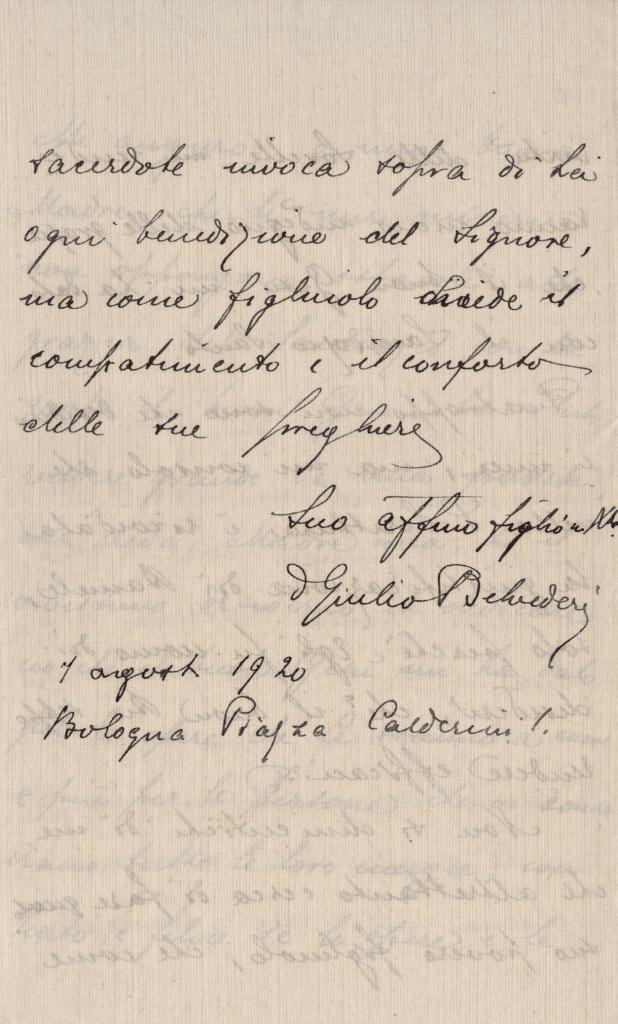 sacerdote invoca sopra di Lei
ogni benedizione del Signore,
ma come figliuolo chiede il
compatimento e il conforto
delle sue preghiere
Suo affmo figlio in
d Giulio Belvederi
1 agost 1920
Bologna Piazza Calderini 1.